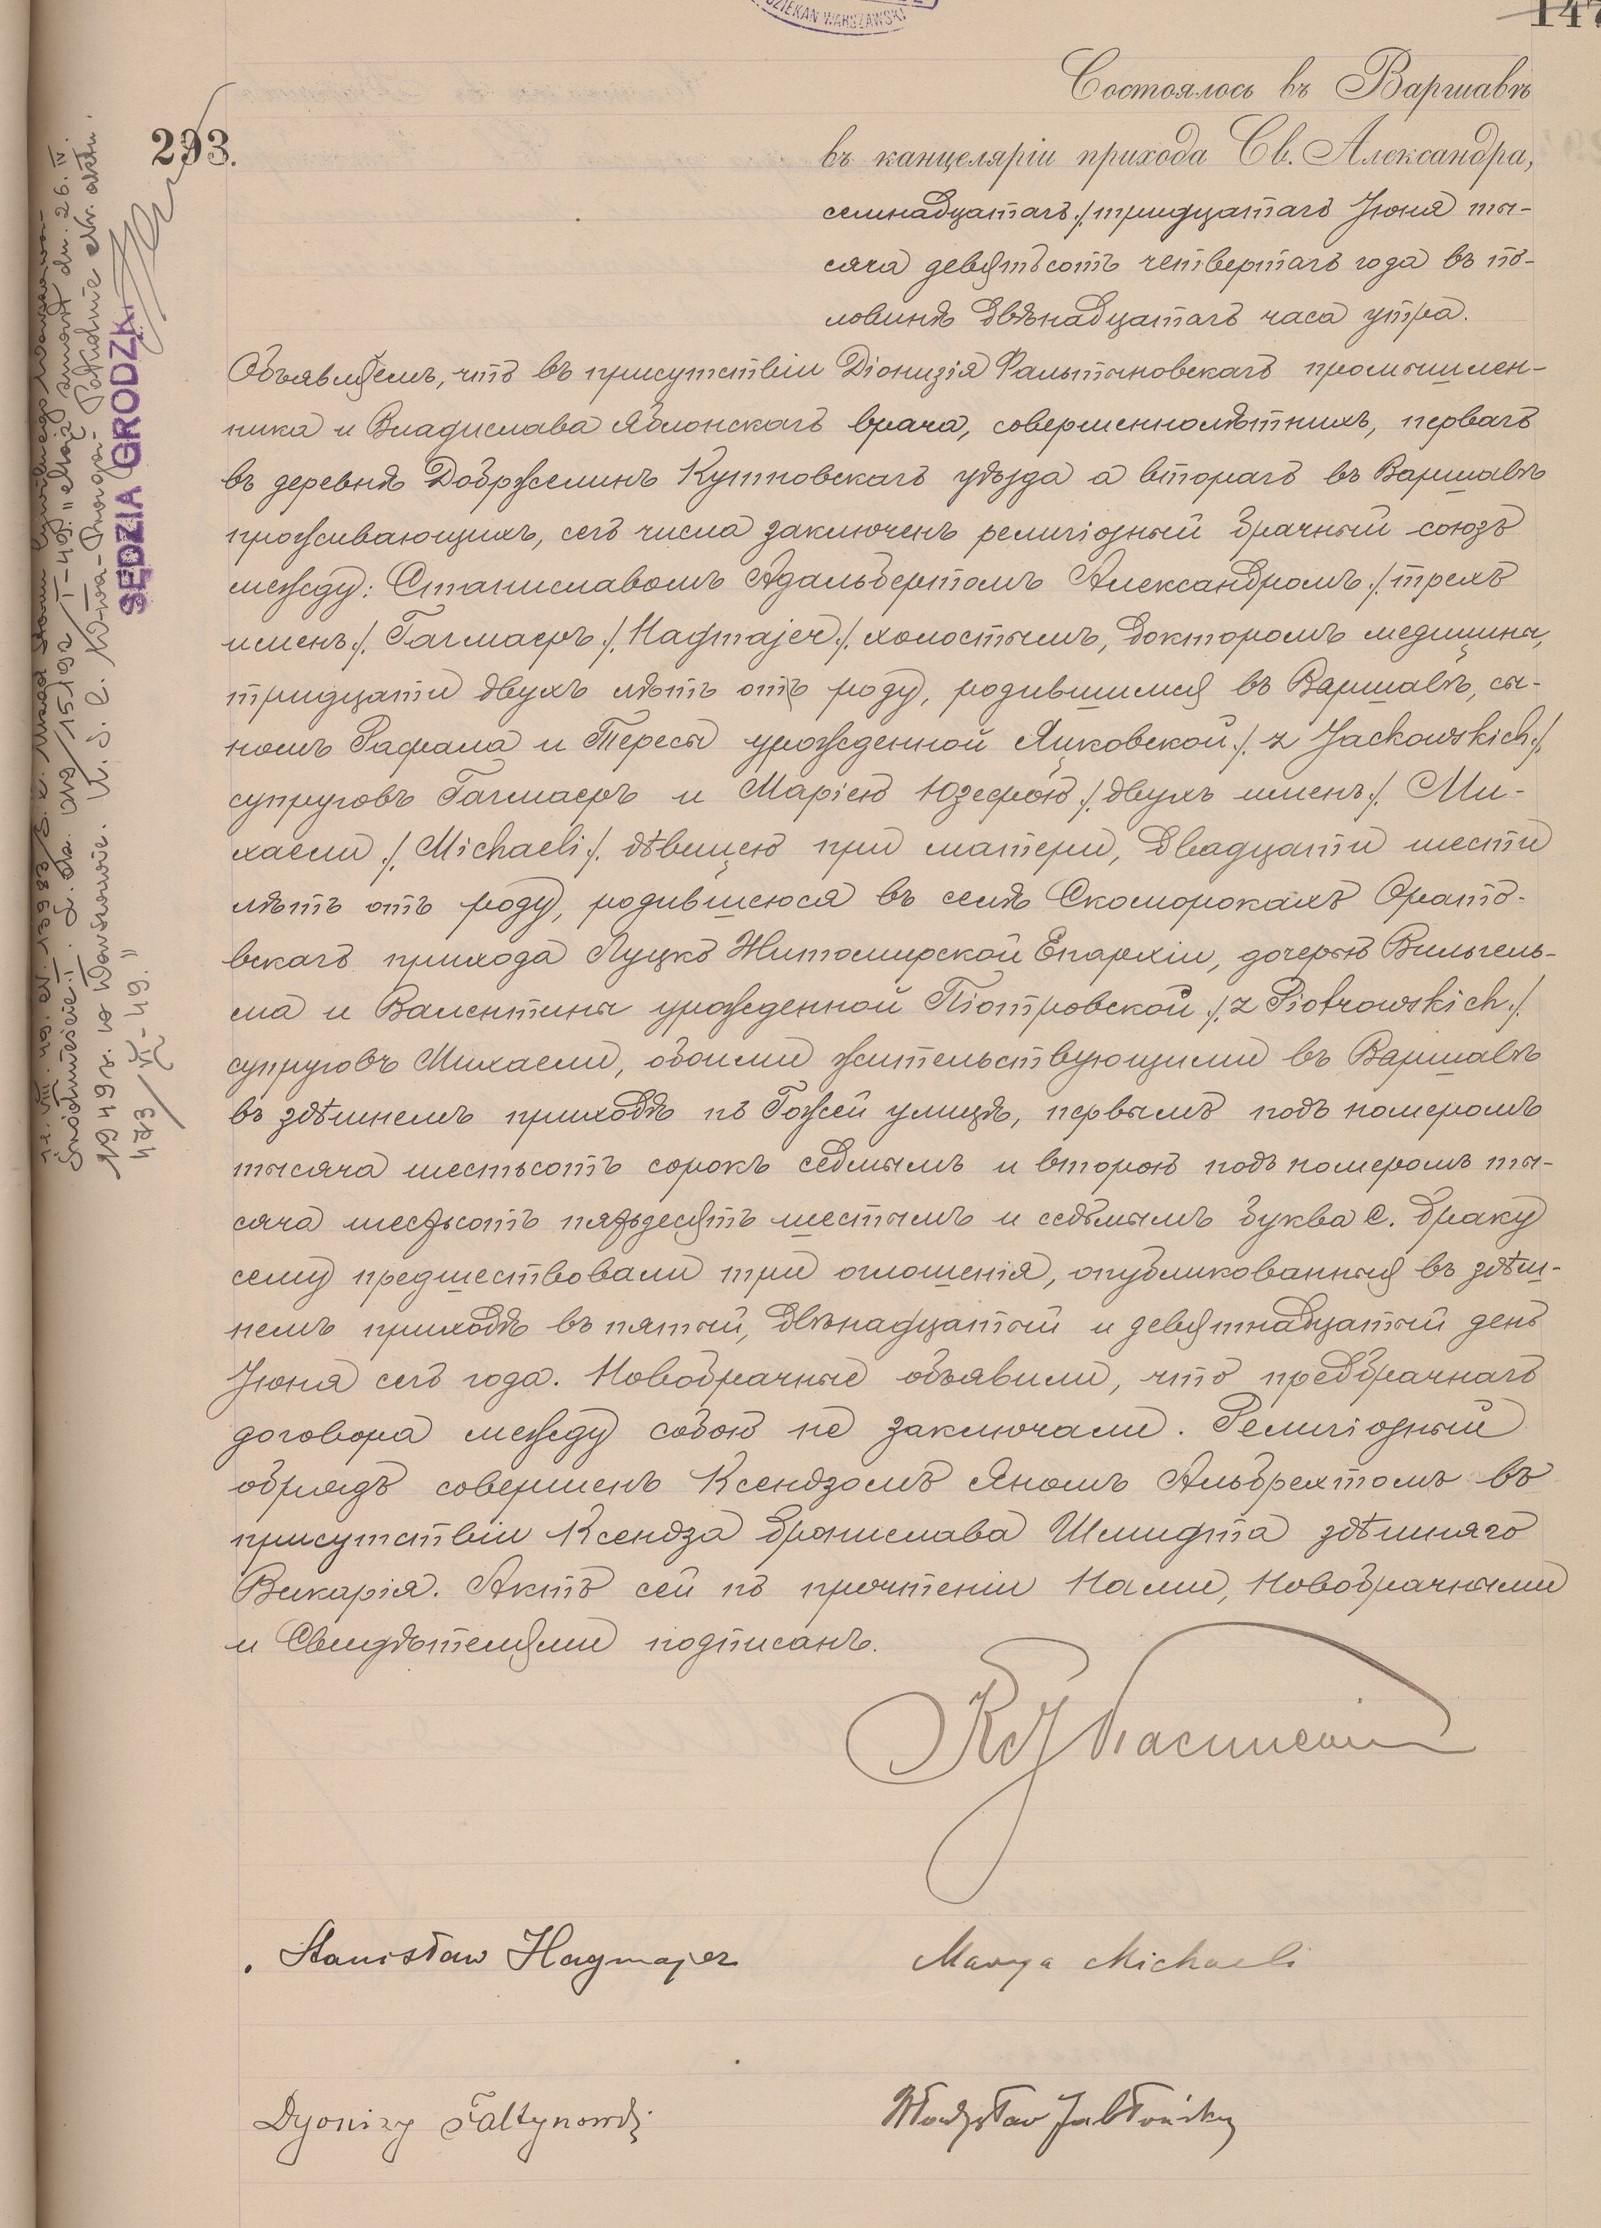 DZIEKAN WARSZAWSKI
147
293.
Состоялось въ Варшавѣ
въ канцеляріи прихода Св. Александра,
семнадцатаго /тридцатаго Іюня ты-
сяча девятьсотъ четвертаго года въ по-
ловинѣ двѣнадцатаго часа утра.
Объявляемъ, что въ присутствіи Діонизія Фальтыновскаго промышлен-
ника и Владислава Яблонскаго врача, совершеннолѣтнихъ, перваго
въ деревнѣ Добржелинъ Кутновскаго уѣзда а втораго въ Варшавѣ
проживающихъ, сего числа заключенъ религіозный брачный союзъ
между: Станиславомъ Адальбертомъ Александромъ /трехъ
именъ/ Гагмаеръ /Hagmajer/ холостымъ, докторомъ медицины,
тридцати двухъ лѣтъ отъ роду, родившимся въ Варшавѣ, сы-
номъ Рафала и Тересы урожденной Яцковской /z Jackowskich/
супруговъ Гагмаеръ и Маріею Юзефою /двухъ именъ/ Ми-
хаели /Michaeli/ дѣвицею при матери, двадцати шести
лѣтъ отъ роду, родившеюся въ селѣ Скоморокахъ Орато-
вскаго прихода Луцко Житомирской Епархіи, дочерью Вильгель-
ма и Валентины урожденной Піотровской /z Piotrowskich/
супруговъ Михаели, обоими жительствующими въ Варшавѣ
въ здѣшнемъ приходѣ по Гожей улицѣ, первымъ подъ номеромъ
тысяча шестьсотъ сорокъ седмымъ и второю подъ номеромъ ты-
сяча шестьсотъ пятьдесятъ шестымъ и седьмымъ буква С. Браку
сему предшествовали три оглошенія, опубликованныя въ здѣш-
немъ приходѣ въ пятый, двѣнадцатый и девятнадцатый день
Іюня сего года. Новобрачные объявили, что предбрачнаго
договора между собою не заключали. Религіозный
обрядъ совершенъ Ксендзомъ Яномъ Альбрехтомъ въ
присутствіи Ксендза Бронислава Шмидта здѣшняго
Викарія. Актъ сей по прочтеніи Нами, Новобрачными
и Свидѣтелями подписанъ.
Stanisław Hagmajer
Marya Michaeli
Dyonizy Faltynowski
Władysław Jabłoński
SĘDZIA GRODZKI
1949 r. w Warszawie.